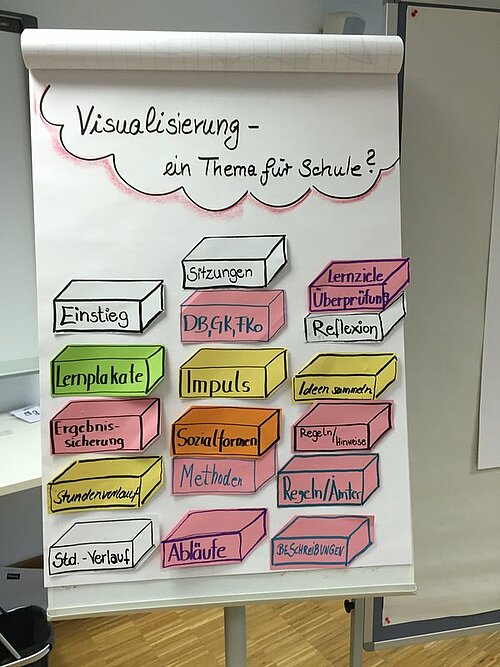 Visualisierung -
ein Thema für Schule?
Sitzungen
Einstieg
DB, GK, FKo
Lernziele
Überprüfung
Reflexion
Lernplakate
Impuls
Ideen sammeln
Ergebnis-
sicherung
Sozialformen
Regeln/Hinweise
Stundenverlauf
Methoden
Regeln/Ämter
Std.-Verlauf
Abläufe
BESCHREIBUNGEN